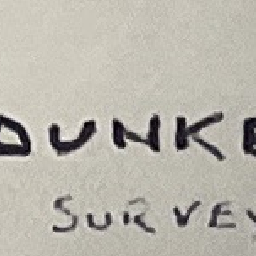 DUNKE
SURVEY